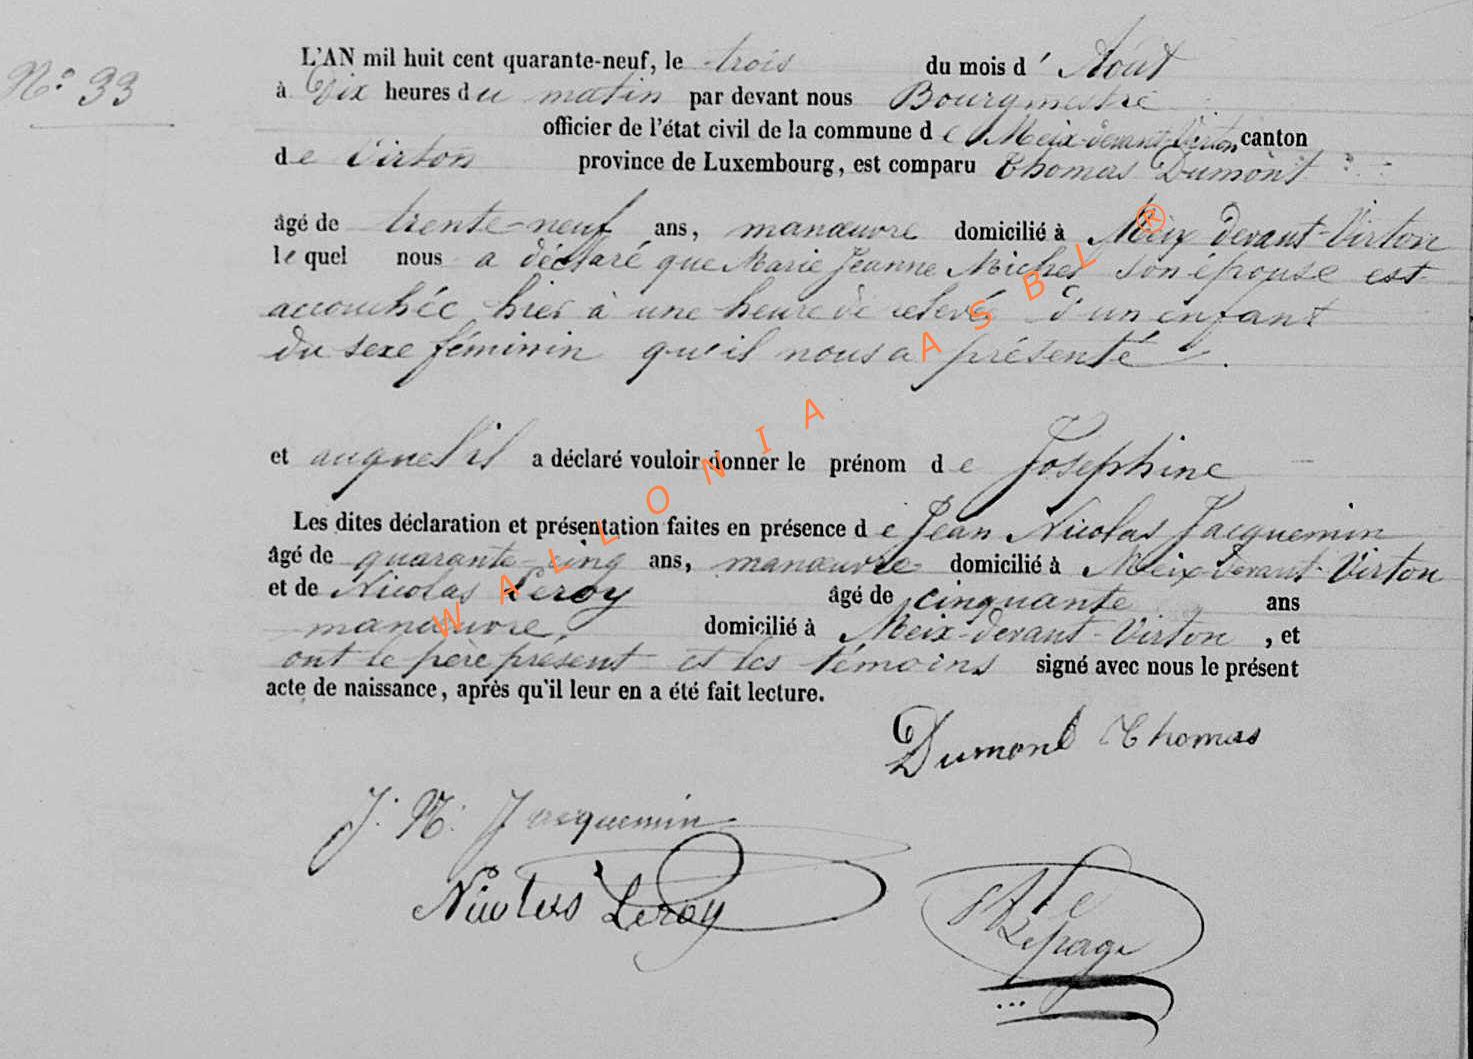 N.° 33
L'AN mil huit cent quarante-neuf, le trois du mois d' Août
à Dix heures du matin par devant nous Bourgmestre
officier de l'état civil de la commune de Meix-devant-Virton canton
de Virton province de Luxembourg, est comparu Thomas Dumont
âgé de trente-neuf ans, manœuvre domicilié à Meix devant-Virton
lequel nous a déclaré que Marie Jeanne Michel son épouse est
accouchée hier à une heure de relevée d'un enfant
du sexe féminin qu'il nous a présenté.
et auquel il a déclaré vouloir donner le prénom de Josephine
Les dites déclaration et présentation faites en présence de Jean Nicolas Jacquemin
âgé de quarante-cinq ans, manœuvre domicilié à Meix devant-Virton
et de Nicolas Leroy âgé de cinquante ans
manœuvre, domicilié à Meix-devant-Virton, et
ont le père présent et les témoins signé avec nous le présent
acte de naissance, après qu'il leur en a été fait lecture.
Dumont Thomas
J. N. Jacquemin
Nicolas Leroy
Lepage
WALLONIA ASBL ®